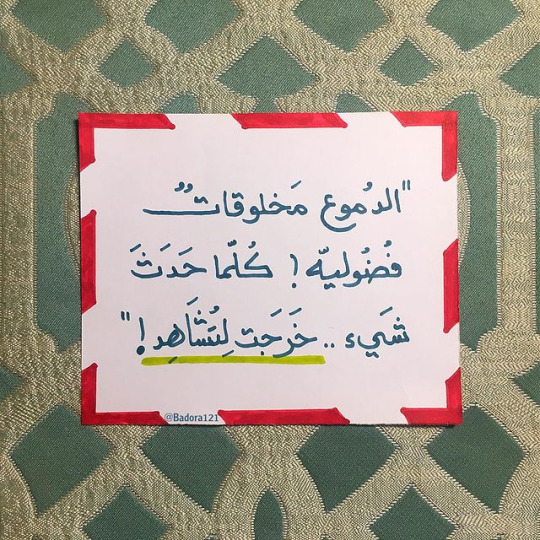 "الدُموع مَخلوقاتٌ
فُضُوليّه! كُلّما حَدَثَ
شَيء .. خَرَجَت لِتُشَاهِد!"
@Badora121